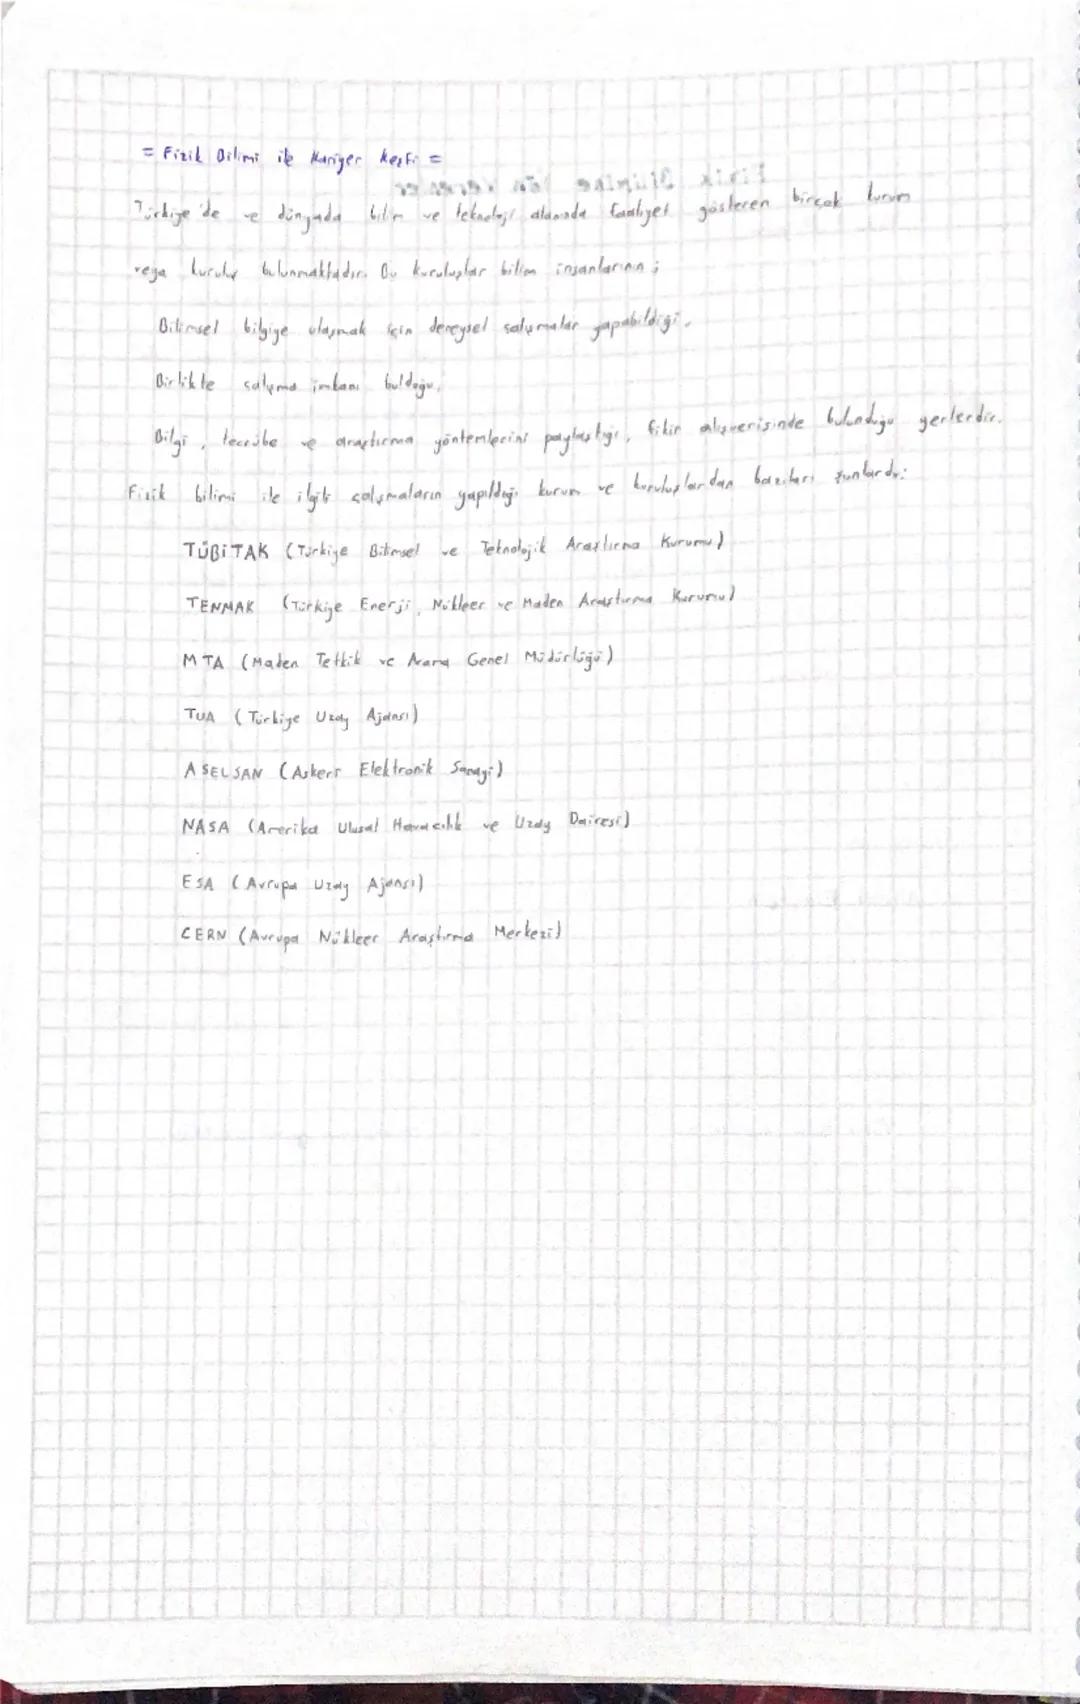 = Fizik Bilimi ile Kariyer Keşfi =
Türkiye'de ve dünyada bilim ve teknoloji alanında faaliyet gösteren birçok kurum
veya kuruluş bulunmaktadır. Bu kuruluşlar bilim insanlarının ;
Bilimsel bilgiye ulaşmak için deneysel çalışmalar yapabildiği,
Birlikte çalışma imkanı bulduğu,
Bilgi, tecrübe ve araştırma yöntemlerini paylaştığı, fikir alışverişinde bulunduğu yerlerdir.
Fizik bilimi ile ilgili çalışmaların yapıldığı kurum ve kuruluşlardan bazıları şunlardır:
TÜBİTAK (Türkiye Bilimsel ve Teknolojik Araştırma Kurumu)
TENMAK (Türkiye Enerji, Nükleer ve Maden Araştırma Kurumu)
MTA (Maden Tetkik ve Arama Genel Müdürlüğü)
TUA (Türkiye Uzay Ajansı)
ASELSAN (Askeri Elektronik Sanayi)
NASA (Amerika Ulusal Havacılık ve Uzay Dairesi)
ESA (Avrupa Uzay Ajansı)
CERN (Avrupa Nükleer Araştırma Merkezi)